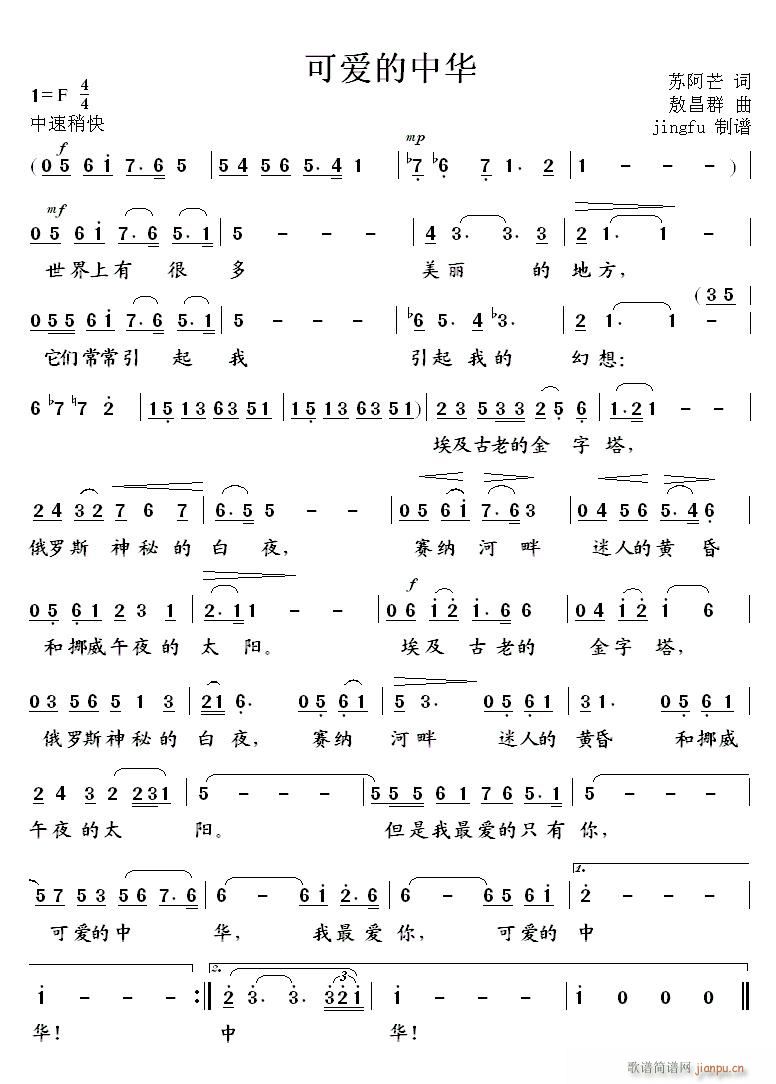 可爱的中华
1=F 4/4
中速稍快
苏阿芒 词
敖昌群 曲
jingfu 制谱
f mp
(0 5 6 1 7. 6 5 | 5 4 5 6 5. 4 1 | b7 b6 7 1. 2 | 1 - - - )
mf
0 5 6 1 7. 6 5. 1 | 5 - - - | 4 3. 3. 3 | 2 1. 1. - |
世界上有 很 多 美 丽 的 地 方,
(3 5
0 5 5 6 1 7. 6 5. 1 | 5 - - - | b6 5. 4 b3. | 2 1. 1. - |
它们常常引 起 我 引起我的 幻 想:
6 b7 ♮7 2 | 1 5 1 3 6 3 5 1 | 1 5 1 3 6 3 5 1) | 2 3 5 3 3 2 5 6 | 1. 2 1 - - |
埃及古老的金 字 塔,
2 4 3 2 7 6 7 | 6. 5 5 - - | 0 5 6 1 7. 6 3 | 0 4 5 6 5. 4 6 |
俄罗斯 神秘的 白 夜, 赛纳 河 畔 迷人的黄 昏
0 5 6 1 2 3 1 | 2. 1 1 - - | f 0 6 1 2 1. 6 6 | 0 4 1 2 1 6 |
和挪威午夜的 太 阳。 埃及 古老的 金字 塔,
0 3 5 6 5 1 3 | 2 1 6. 0 5 6 1 | 5 3. 0 5 6 1 | 3 1. 0 5 6 1 |
俄罗斯神秘的 白 夜, 赛纳 河 畔 迷人的 黄昏 和挪威
2 4 3 2 2 3 1 | 5 - - - | 5 5 5 6 1 7 6 5. 1 | 5 - - - |
午夜的太 阳。 但是我最爱的只有 你,
1.
5 7 5 3 5 6 7. 6 | 6 - 6 1 2. 6 | 6 - 6 5 6 1 | 2 - - - |
可爱的中 华, 我最爱 你, 可爱的 中
2. 3
1 - - - :| 2 3. 3. 3 2 1 | 1 - - - | 1 0 0 0 ‖
华! 中 华!
歌谱简谱网
jianpu.cn